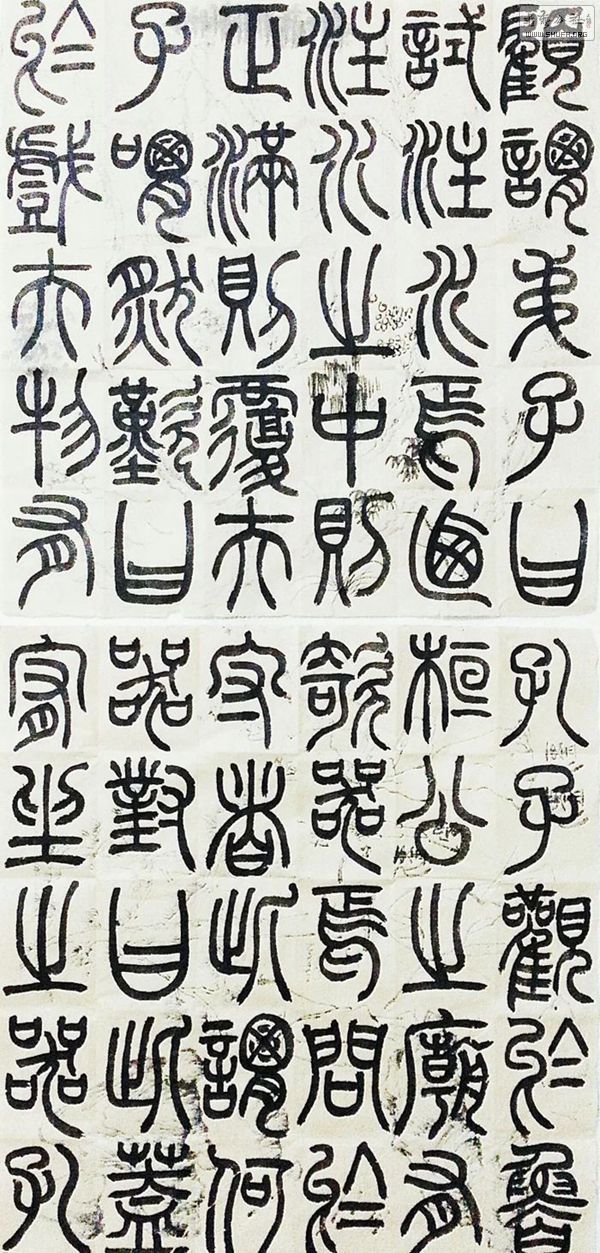 顧謂弟子曰
試注水焉迺
注水之中則
正滿則覆夫
子喟然歎曰
於戲夫物有
孔子觀於魯
桓公之廟有
欹器焉問於
守者此謂何
器對曰此蓋
宥坐之器孔
WWW.SHUFA.ORG